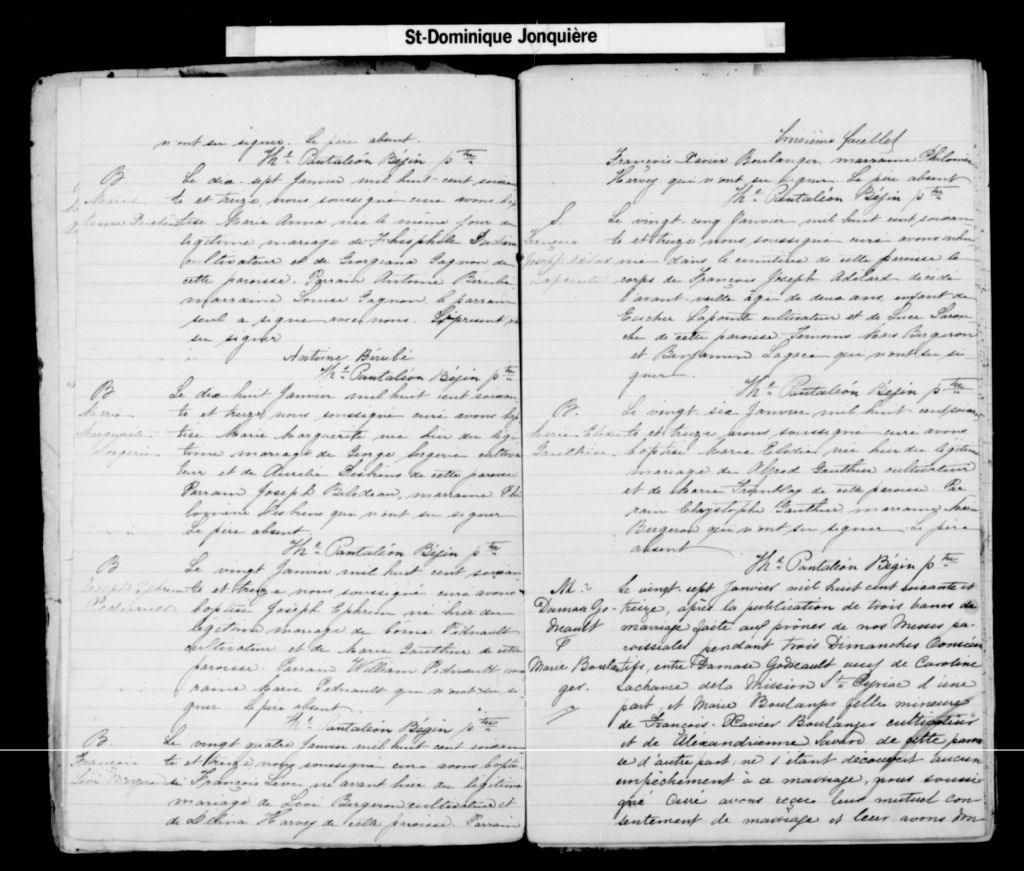 St-Dominique Jonquière
n'ont su signer. Le père absent.
Ths Pantaléon Bégin ptre
B
Marie
Le dix-sept Janvier mil huit cent soixan-
te et treize, nous soussigné curé avons bap-
tisé Marie Anna née le même jour du
légitime mariage de Théophile
cultivateur et de Georgeana Gagnon de
cette paroisse. Parrain Antoine Bérubé
marraine Louise Gagnon le parrain
seul a signé avec nous.
su signer
Antoine Bérubé
Ths Pantaléon Bégin ptre
B
Marie
Marguerite
Le dix huit Janvier mil huit cent soixan-
te et treize nous soussigné curé avons bap-
tisé Marie Marguerite née hier du légi-
time mariage de George cultiva-
teur et de Aurélie Desbiens de cette paroisse
Parrain Joseph Belodeau, marraine Phi-
lomène Desbiens qui n'ont su signer
Le père absent.
Ths Pantaléon Bégin ptre
B
Joseph Ephrem
Pednault
Le vingt Janvier mil huit cent soixan-
te et treize nous soussigné curé avons
baptisé Joseph Ephrem né hier du
légitime mariage de Pednault
cultivateur et de Marie Gauthier de cette
paroisse. Parrain William Pednault mar-
raine Marie Pednault qui n'ont su si-
gner. Le père absent.
Ths Pantaléon Bégin ptre
B
François
Lévi Bergeron
Le vingt quatre Janvier mil huit cent soixan-
te et treize nous soussigné curé avons bapti-
sé François Lévi né avant hier du légitime
mariage de Léon Bergeron cultivateur et
de Délina Harvey de cette paroisse. Parrain
Troisième feuillet
François Xavier Boulanger, marraine Philomène
Harvey qui n'ont su signer. Le père absent
Ths Pantaléon Bégin ptre
S.
François
Joseph Adélard
Lapointe
Le vingt cinq Janvier mil huit cent soixan-
te et treize nous soussigné curé avons inhu-
mé dans le cimetière de cette paroisse le
corps de François Joseph Adélard décédé
l'avant veille âgé de deux ans, enfant de
Eucher Lapointe cultivateur et de Luce
de cette paroisse. Témoins Mars Bergeron
et Benjamin Lagacé qui n'ont su si-
gner.
Ths Pantaléon Bégin ptre
B.
Marie Elodie
Gauthier
Le vingt six Janvier mil huit cent soixan-
te et treize, nous soussigné curé avons
baptisé Marie Elodie née hier du légitime
mariage de Alfred Gauthier cultivateur
et de Marie Tremblay de cette paroisse. Par-
rain Chrystophe Gauthier marraine
Bergeron qui n'ont su signer. Le père
absent
Ths Pantaléon Bégin ptre
M.
Damase Go-
dreault
&
Marie Boulan-
ger.
Le vingt sept Janvier mil huit cent soixante et
treize, après la publication de trois bancs de
mariage faite aux prônes de nos Messes pa-
roissiales pendant trois Dimanches Consécu-
tifs, entre Damase Godreault veuf de Caroline
Lachance de la Mission St Cyriac d'une
part, et Marie Boulanger fille mineure
de François-Xavier Boulanger cultivateur
et de Alexandrienne Savard de cette parois-
se d'autre part; ne s'étant découvert aucun
empêchement à ce mariage, nous soussi-
gné Curé avons reçu leur mutuel con-
sentement de mariage et leur avons don-